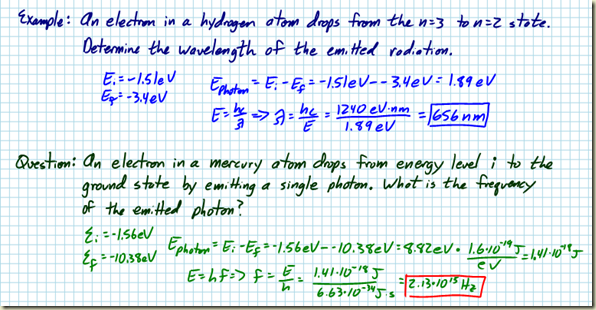 Example: An electron in a hydrogen atom drops from the n=3 to n=2 state.
Determine the wavelength of the emitted radiation.
Eᵢ=-1.51eV
E_f=-3.4eV
E_photon = Eᵢ-E_f = -1.51eV--3.4eV = 1.89 eV
E=hc/λ => λ=hc/E = 1240 eV·nm/1.89 eV = 656 nm
Question: An electron in a mercury atom drops from energy level i to the
ground state by emitting a single photon. What is the frequency
of the emitted photon?
Eᵢ=-1.56eV
E_f=-10.38eV
E_photon = Eᵢ-E_f = -1.56eV--10.38eV = 8.82eV · 1.6·10⁻¹⁹J/eV = 1.41·10⁻¹⁸J
E=hf => f = E/h = 1.41·10⁻¹⁸J/6.63·10⁻³⁴J·s = 2.13·10¹⁵ Hz